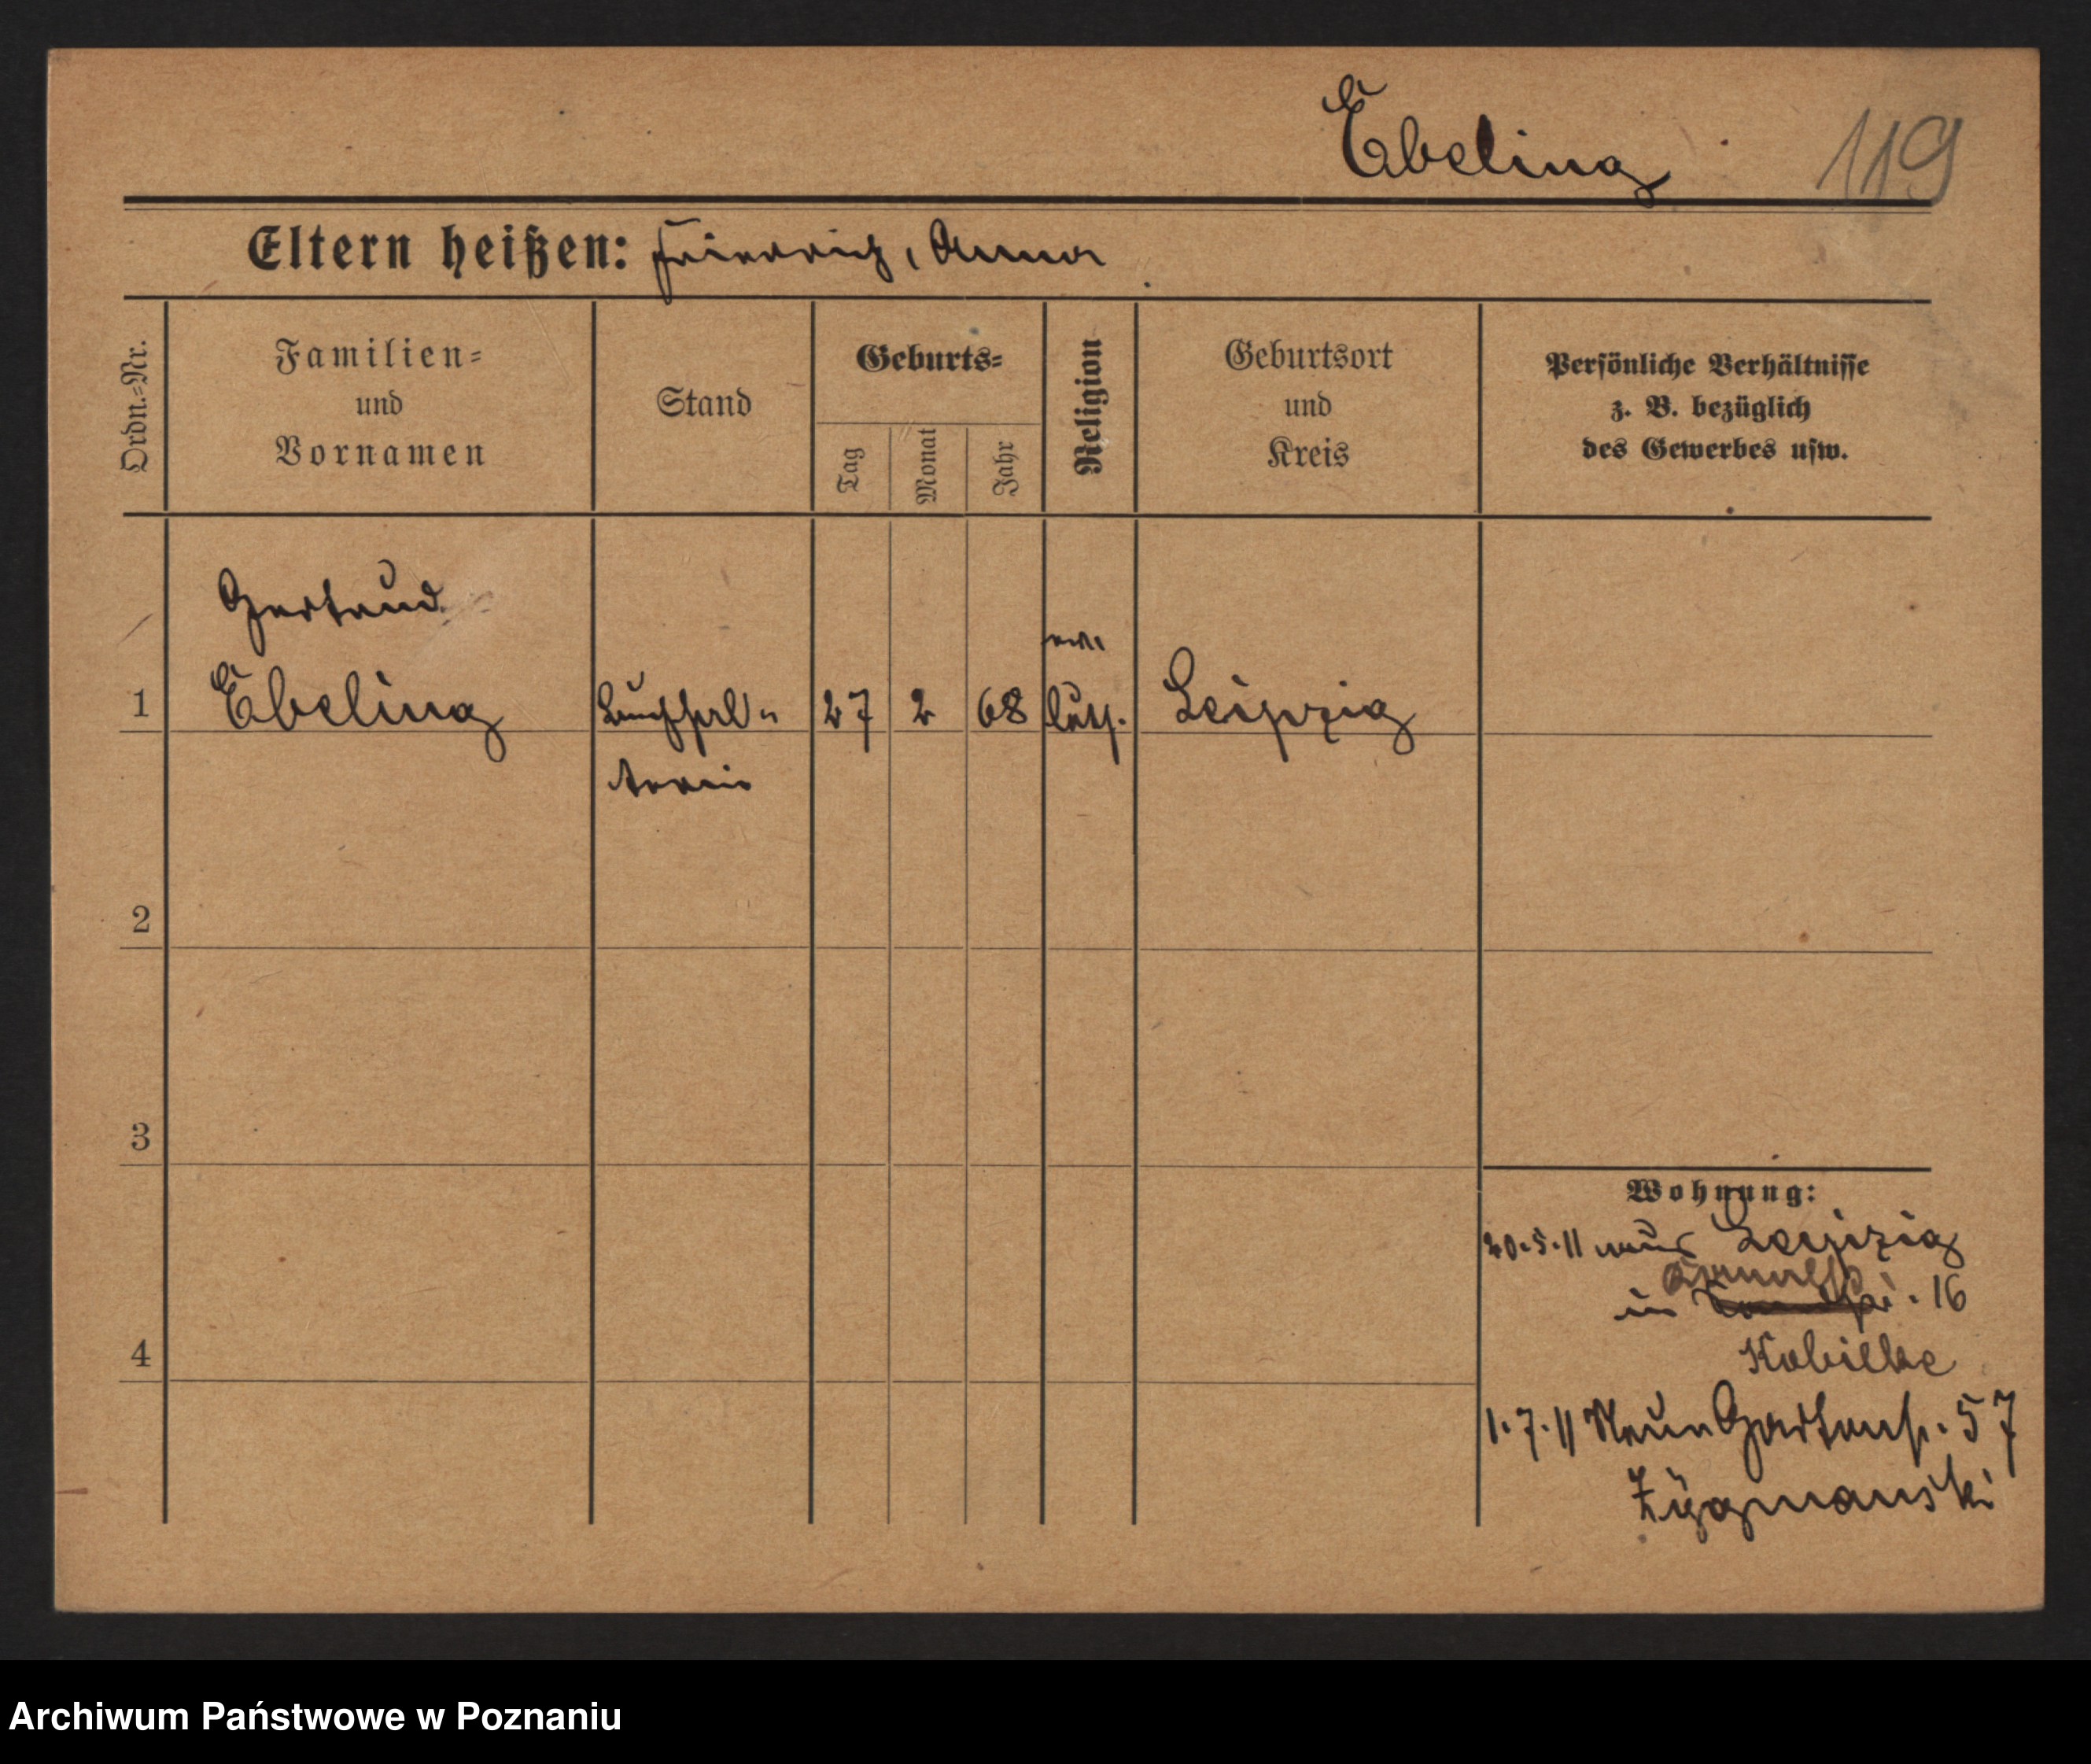 Ebeling 119
Eltern heißen: Friedrich, Anna
Ordn.-Nr.
Familien-
und
Vornamen
Stand
Geburts-
Tag
Monat
Jahr
Religion
Geburtsort
und
Kreis
Persönliche Verhältnisse
z. B. bezüglich
des Gewerbes usw.
Gertrud
ev.
1 Ebeling Buchhal- 27 2 68 luth. Leipzig
terin
2
3
Wohnung:
20.5.11 aus Leipzig
in 16
4 Kobielke
1.7.11 Neue Gartenstr. 57
Zygmanski
Archiwum Państwowe w Poznaniu